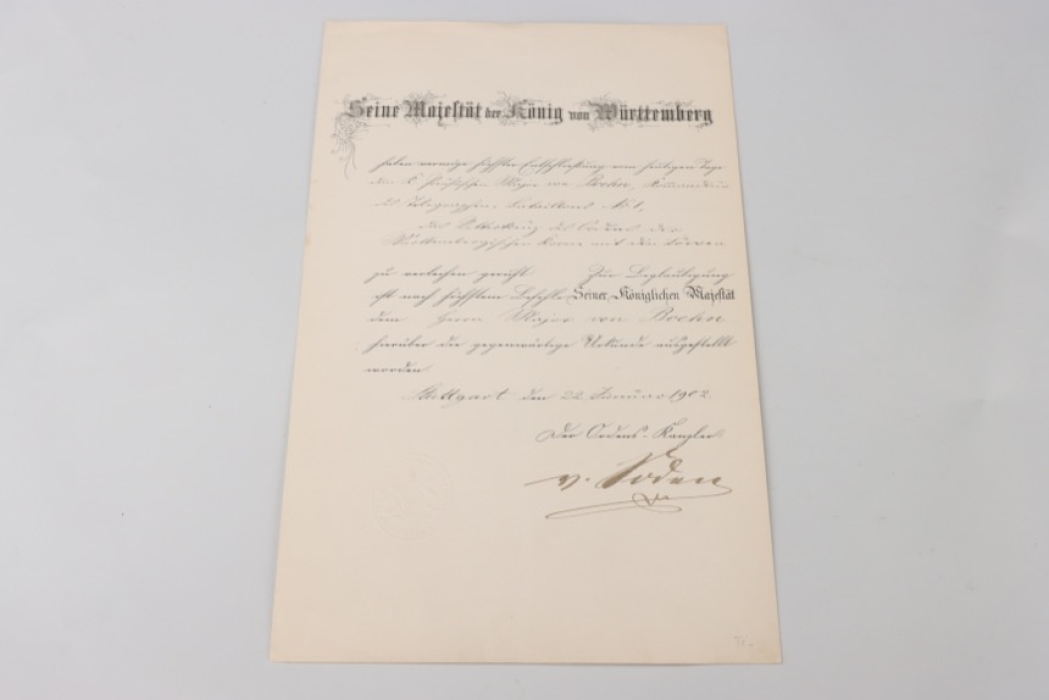 Seine Majestät der König von Württemberg
haben vermöge höchster Entschließung vom heutigen Tage
den K. Preußischen Major von Boehn, Kommandeur
des Telegraphen-Bataillons Nr. 1,
das Ritterkreuz des Ordens der
Württembergischen Krone mit den Löwen
zu verleihen geruht. Zur Beglaubigung
ist nach höchstem Befehle Seiner Königlichen Majestät
dem Herrn Major von Boehn
hierüber die gegenwärtige Urkunde ausgestellt
worden.
Stuttgart den 22. Januar 1902.
Der Ordens-Kanzler:
v. Soden